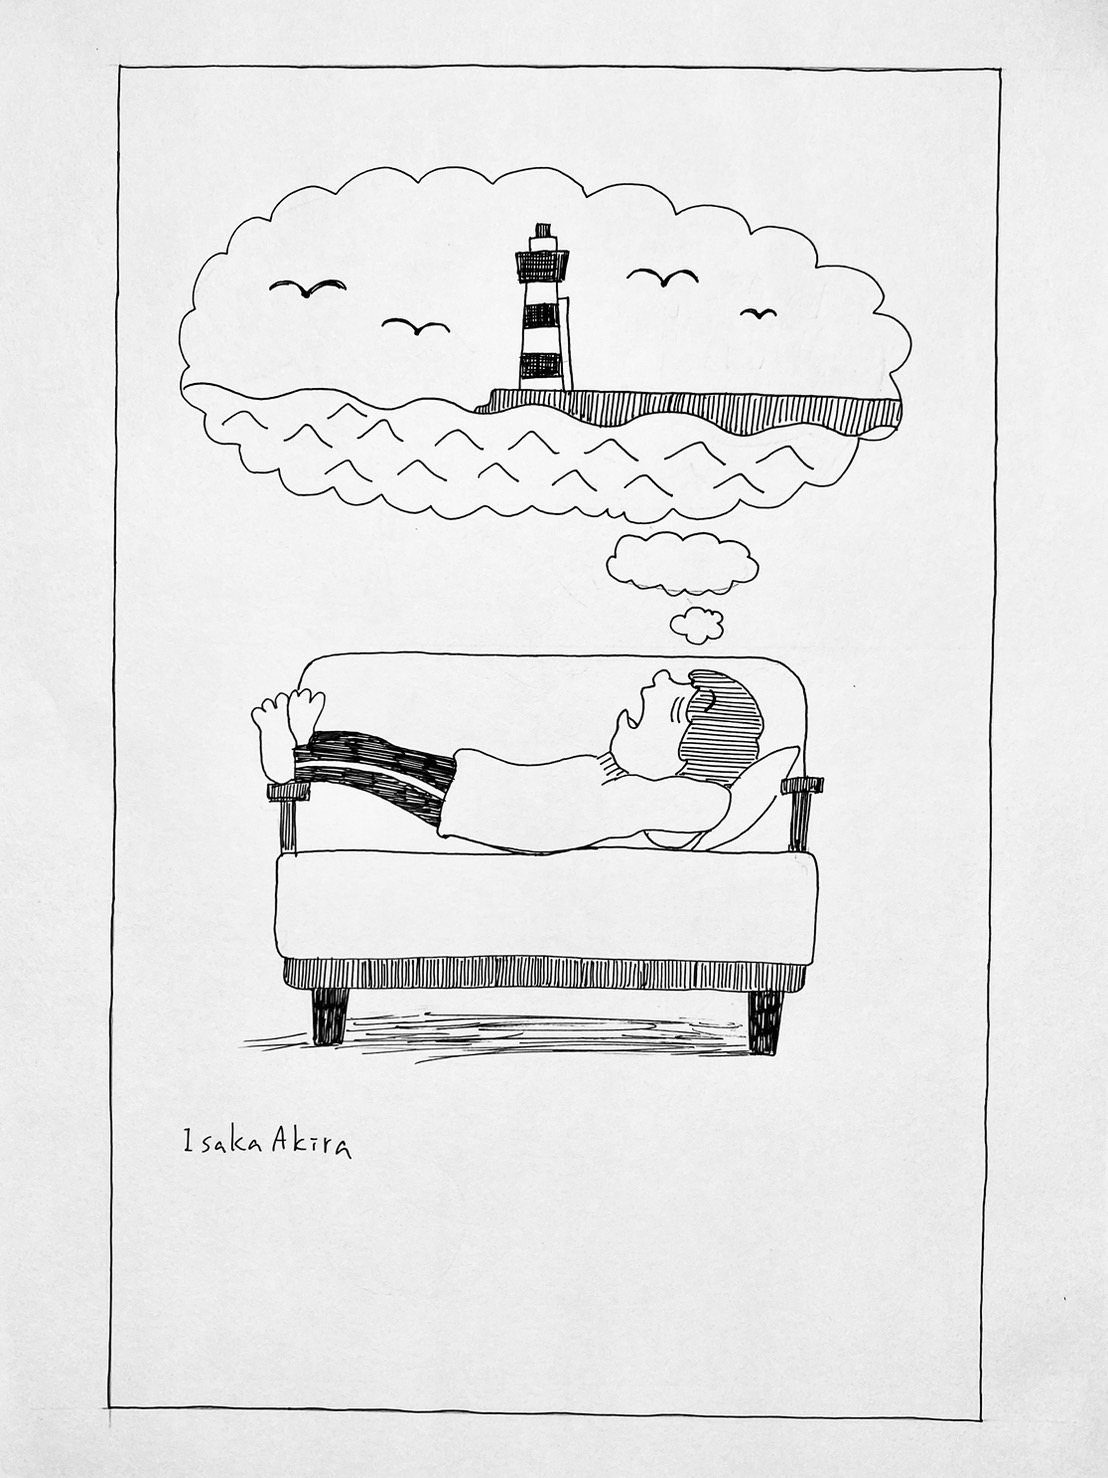 Isaka Akira